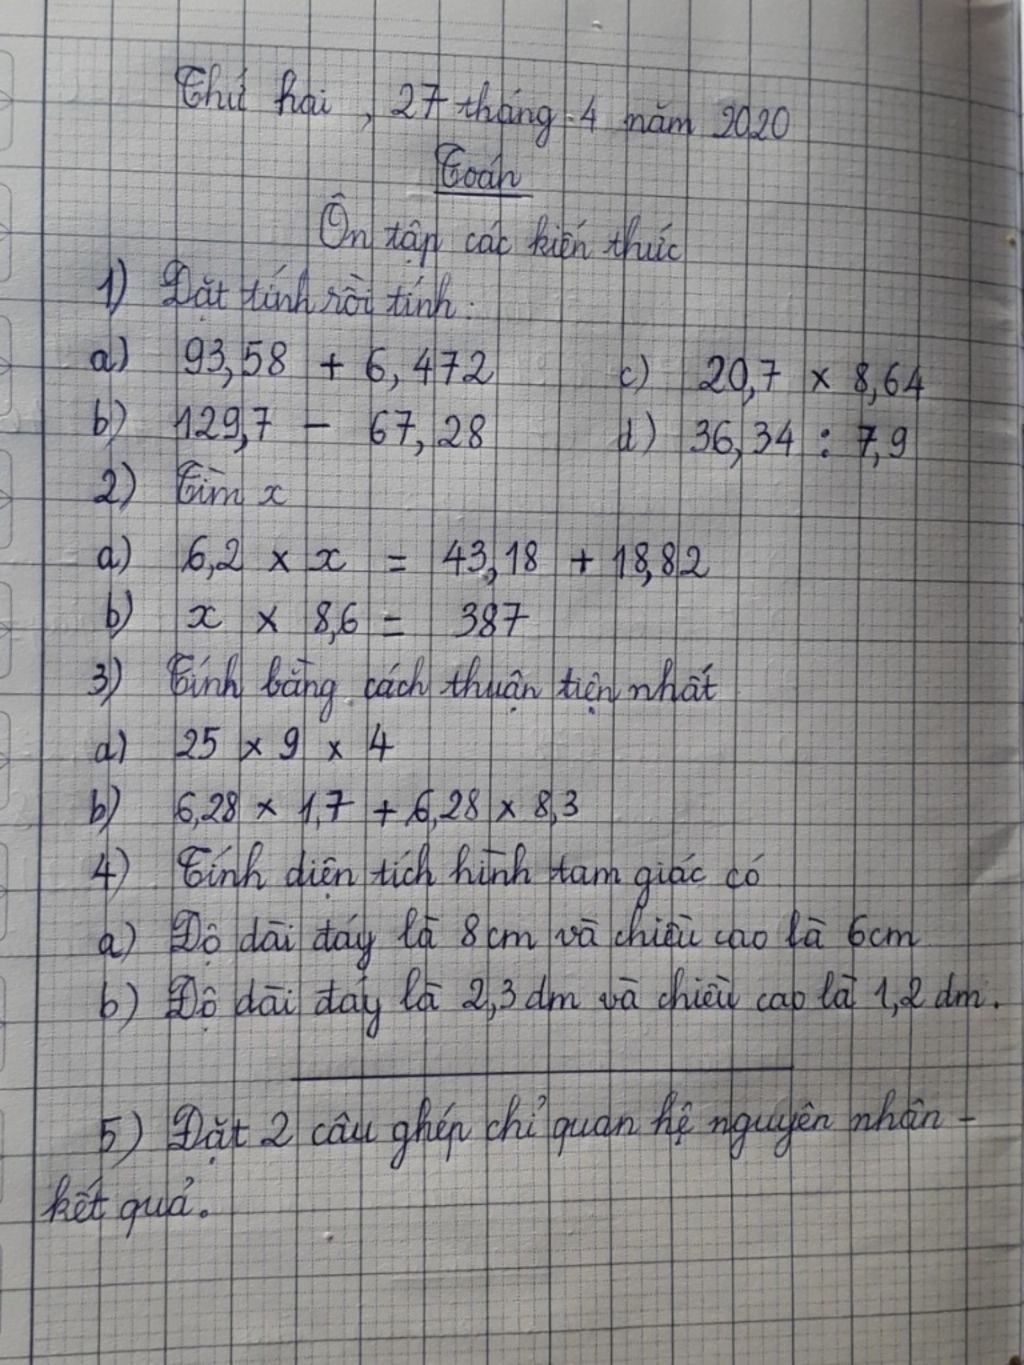 Thứ hai, 27 tháng 4 năm 2020
Toán
Ôn tập các kiến thức
1) Đặt tính rồi tính:
a) 93,58 + 6,472 c) 20,7 × 8,64
b) 129,7 - 67,28 d) 36,34 : 7,9
2) Tìm x
a) 6,2 × x = 43,18 + 18,82
b) x × 8,6 = 387
3) Tính bằng cách thuận tiện nhất
a) 25 × 9 × 4
b) 6,28 × 1,7 + 6,28 × 8,3
4) Tính diện tích hình tam giác có
a) Độ dài đáy là 8cm và chiều cao là 6cm
b) Độ dài đáy là 2,3 dm và chiều cao là 1,2 dm.
5) Đặt 2 câu ghép chỉ quan hệ nguyên nhân -
kết quả.